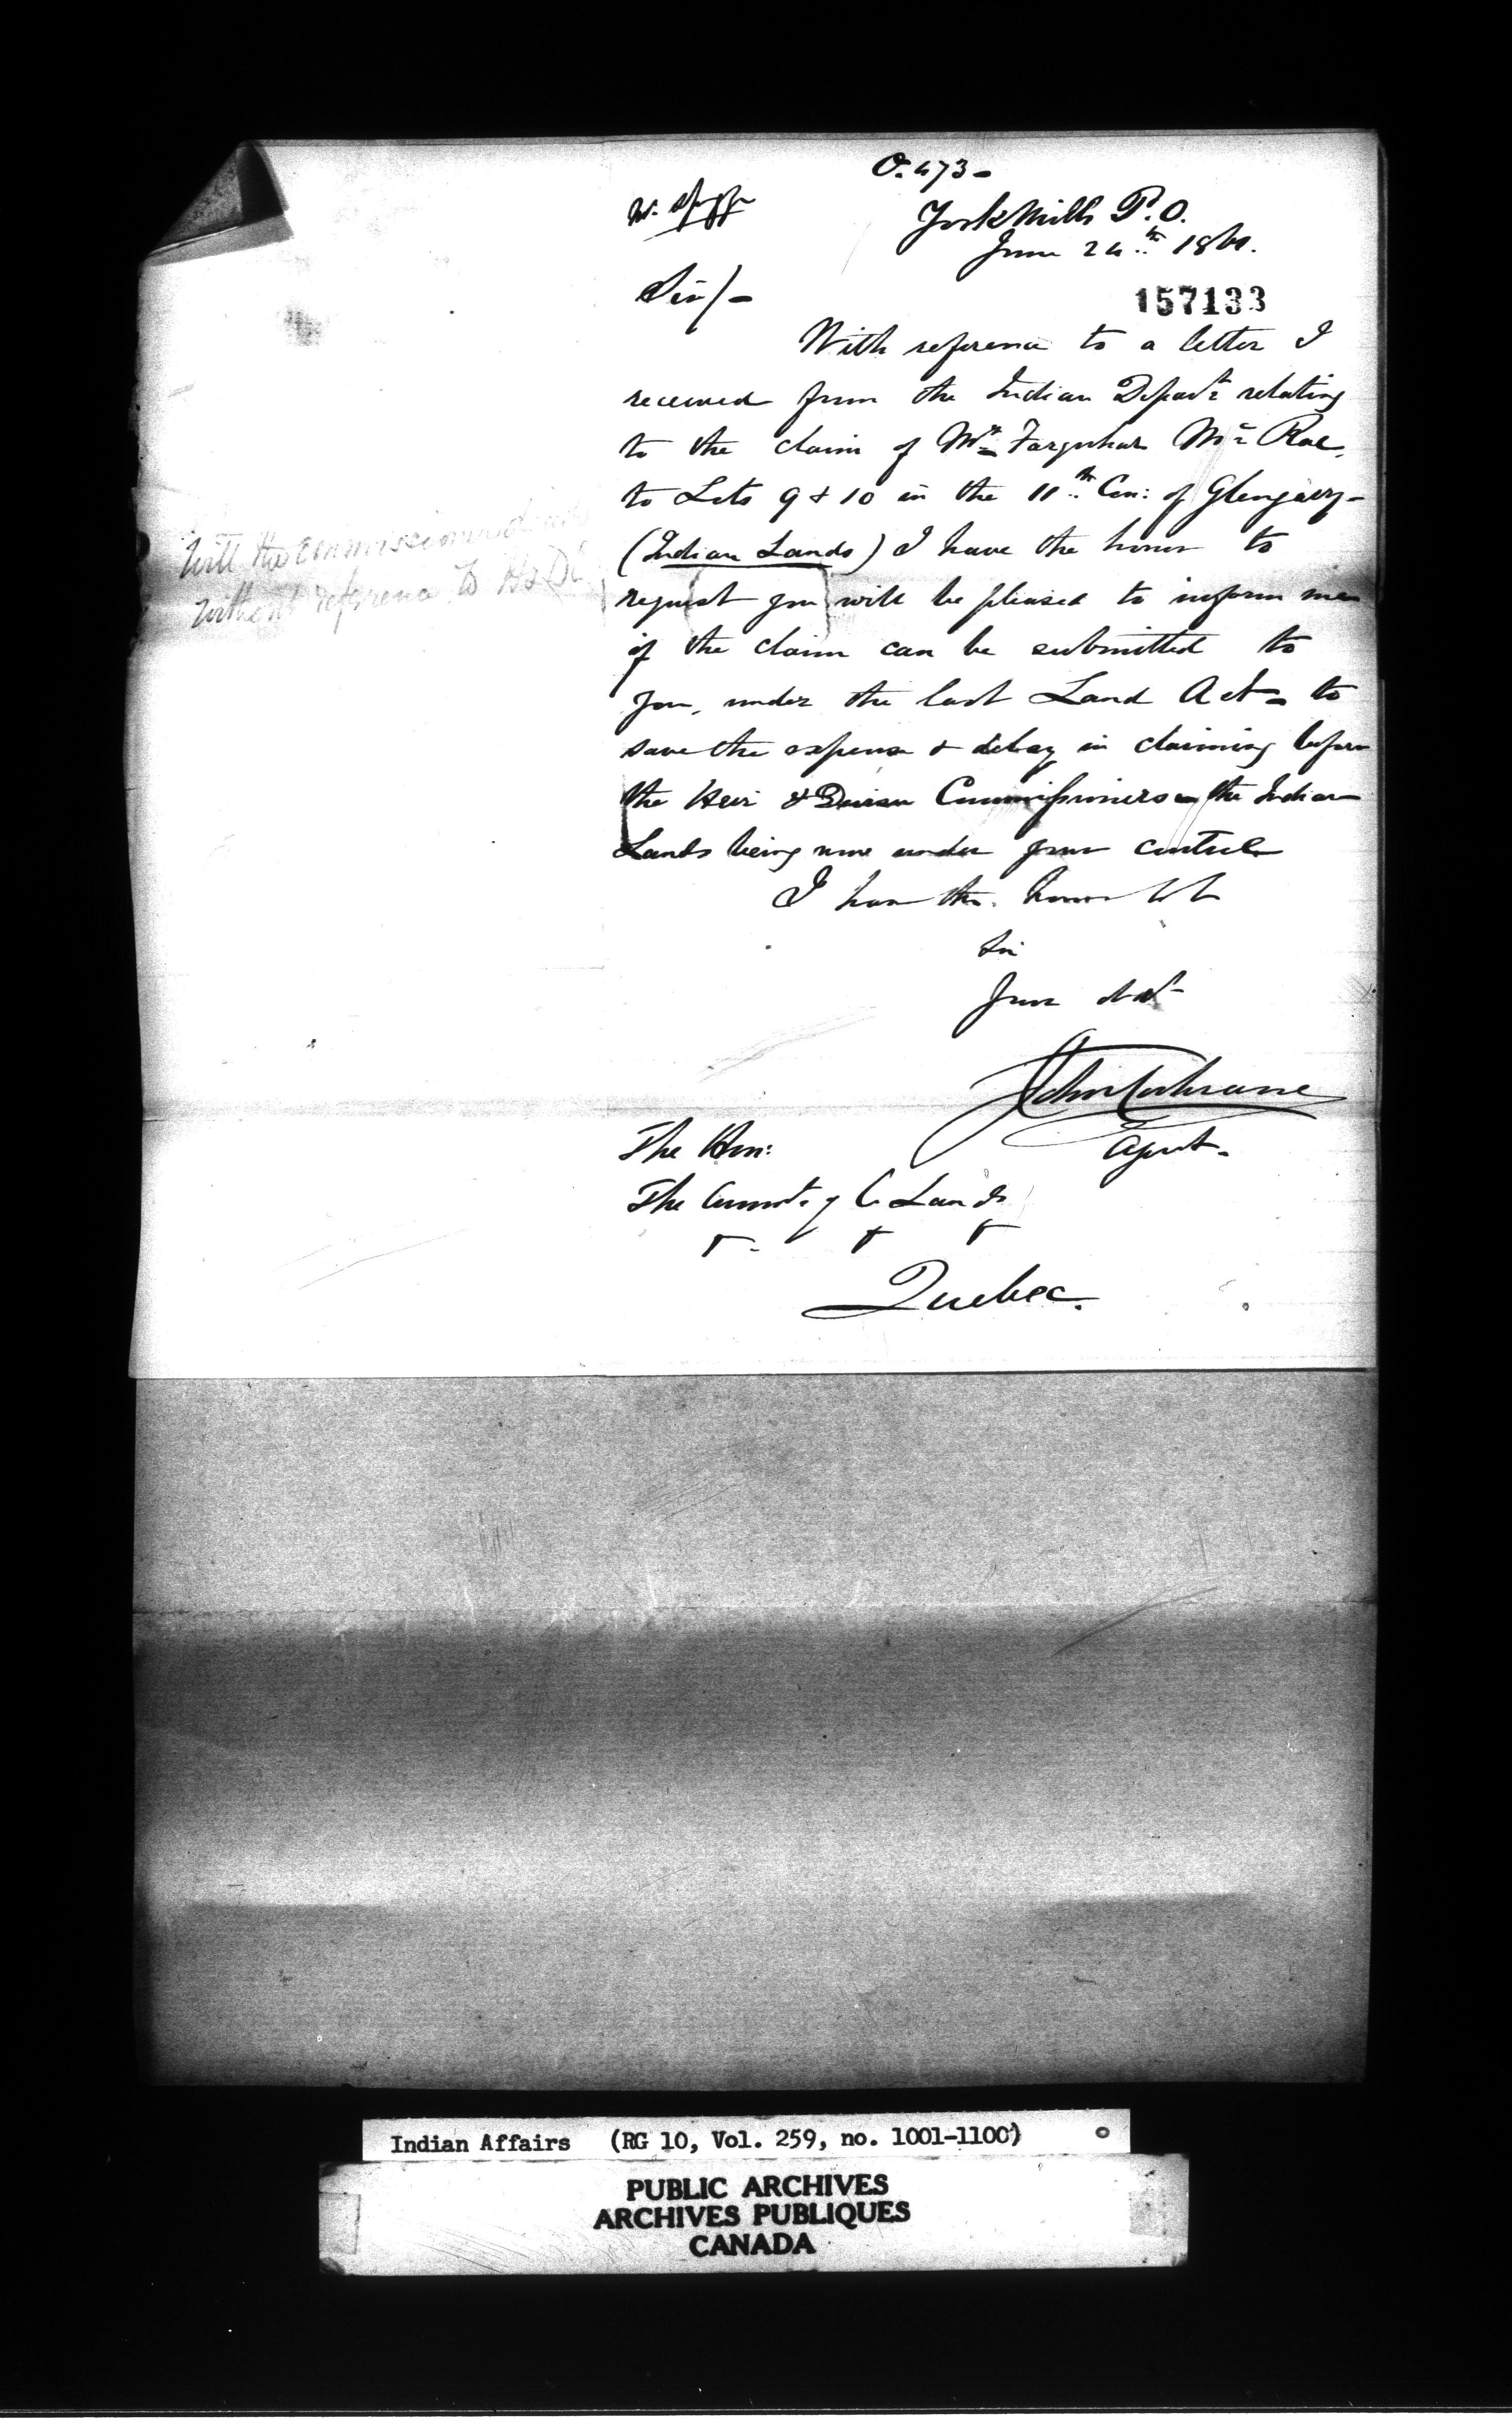 O. 473 -
York Mills P.O.
June 24th 1861.
Sir/-
157133
With reference to a letter I
received from the Indian Depart relating
to the claim of Mr Farquhar Mc Rae,
to Lots 9 & 10 in the 11th Con: of Glengarry -
(Indian Lands) I have the honor to
request you will be pleased to inform me
if the claim can be submitted to
you, under the last Land Act - to
save the expense & delay in claiming before
the Heir & Devisee Commissioners - the Indian
Lands being now under your control
I have the honor
Sir
Your
John Cochrane
Agent.
The Hon:
The Commr. of C. Lands
Quebec.
Will the Commissioner
without reference to H & D C
Indian Affairs (RG 10, Vol. 259, no. 1001-1100)
PUBLIC ARCHIVES
ARCHIVES PUBLIQUES
CANADA